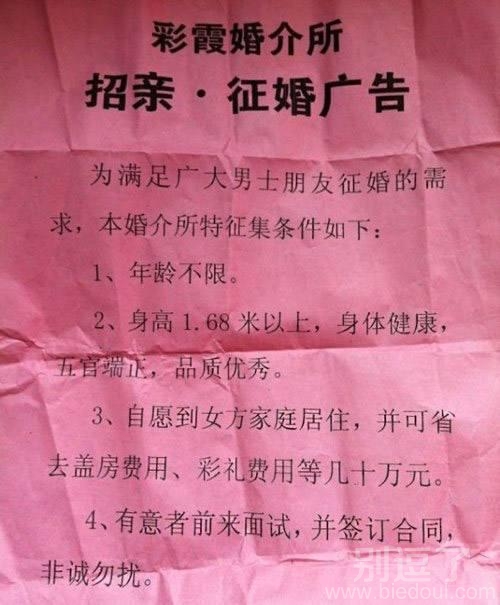 彩霞婚介所
招亲·征婚广告
为满足广大男士朋友征婚的需
求，本婚介所特征集条件如下：
1、年龄不限。
2、身高1.68米以上，身体健康，
五官端正，品质优秀。
3、自愿到女方家庭居住，并可省
去盖房费用、彩礼费用等几十万元。
4、有意者前来面试，并签订合同，
非诚勿扰。
别逗了
www.biedoul.com